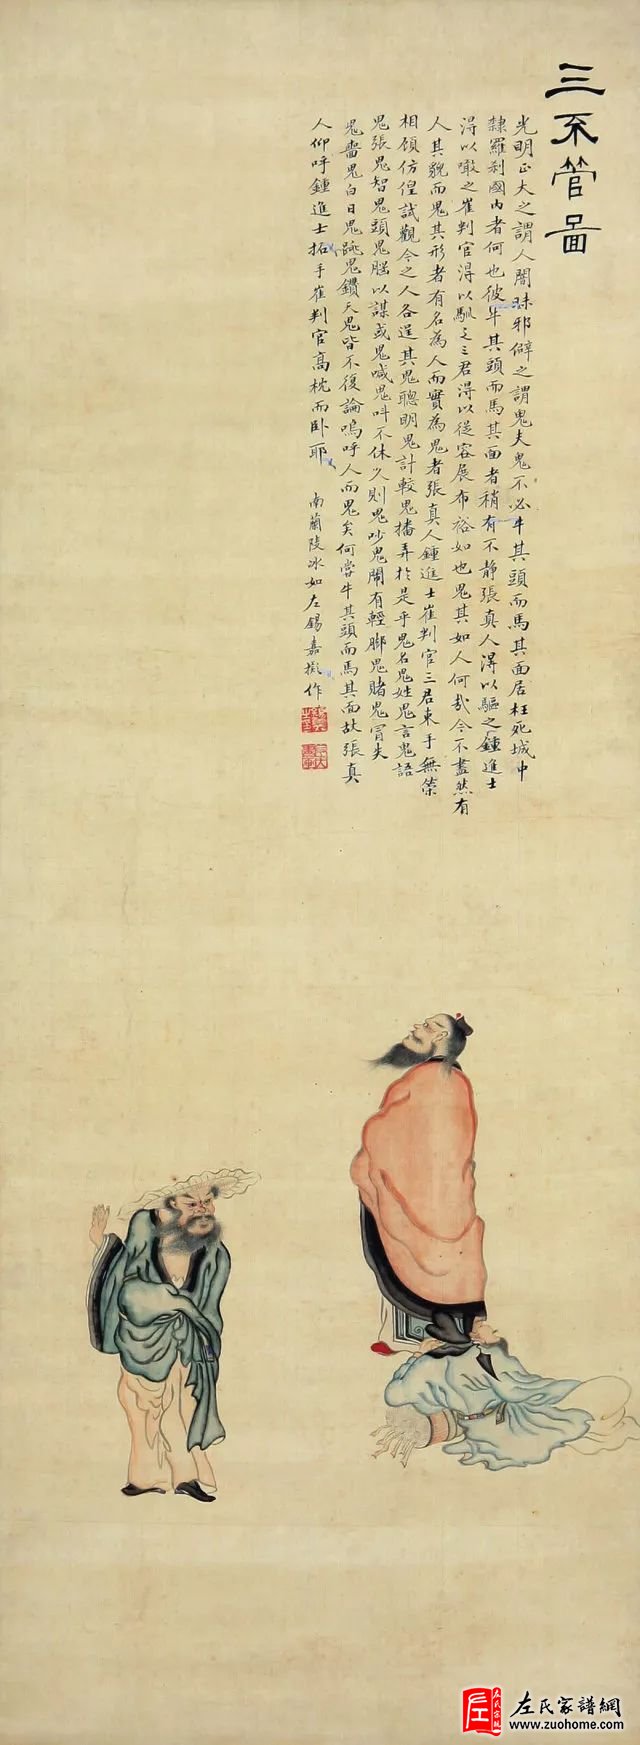 三不管圖
光明正大之謂人闇昧邪僻之謂鬼夫鬼不必牛其頭而馬其面居枉死城中
隸羅剎國內者何也彼牛其頭而馬其面者稍有不靜張真人得以驅之鍾進士
得以噉之崔判官得以馭之三君得以從容展布裕如也鬼其如人何哉今不盡然有
人其貌而鬼其形者有名為人而實為鬼者張真人鍾進士崔判官三君束手無策
相顧仿偟試觀今之人各逞其鬼聰明鬼計較鬼播弄於是乎鬼名鬼姓鬼言鬼語
鬼張鬼智鬼頭鬼腦以謀或鬼喊鬼叫不休久則鬼吵鬼鬧有輕脚鬼賭鬼冒失
鬼嗇鬼白日鬼跳鬼鑽天鬼皆不復論嗚呼人而鬼矣何嘗牛其頭而馬其面故張真
人仰呼鍾進士拓手崔判官高枕而卧耶
南蘭陵冰如左錫嘉撝作
左氏宗親
左氏家譜網
www.zuohome.com